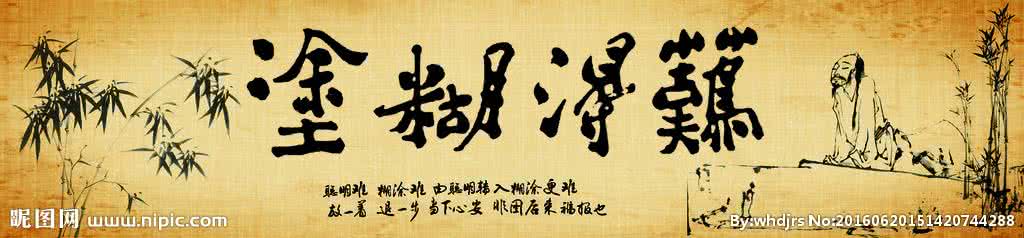 難得糊塗
聪明难 糊涂难 由聪明转入糊涂更难
放一着 退一步 当下心安 非图后来福报也
昵图网 www.nipic.com
By:whdjrs No:20160620151420744288